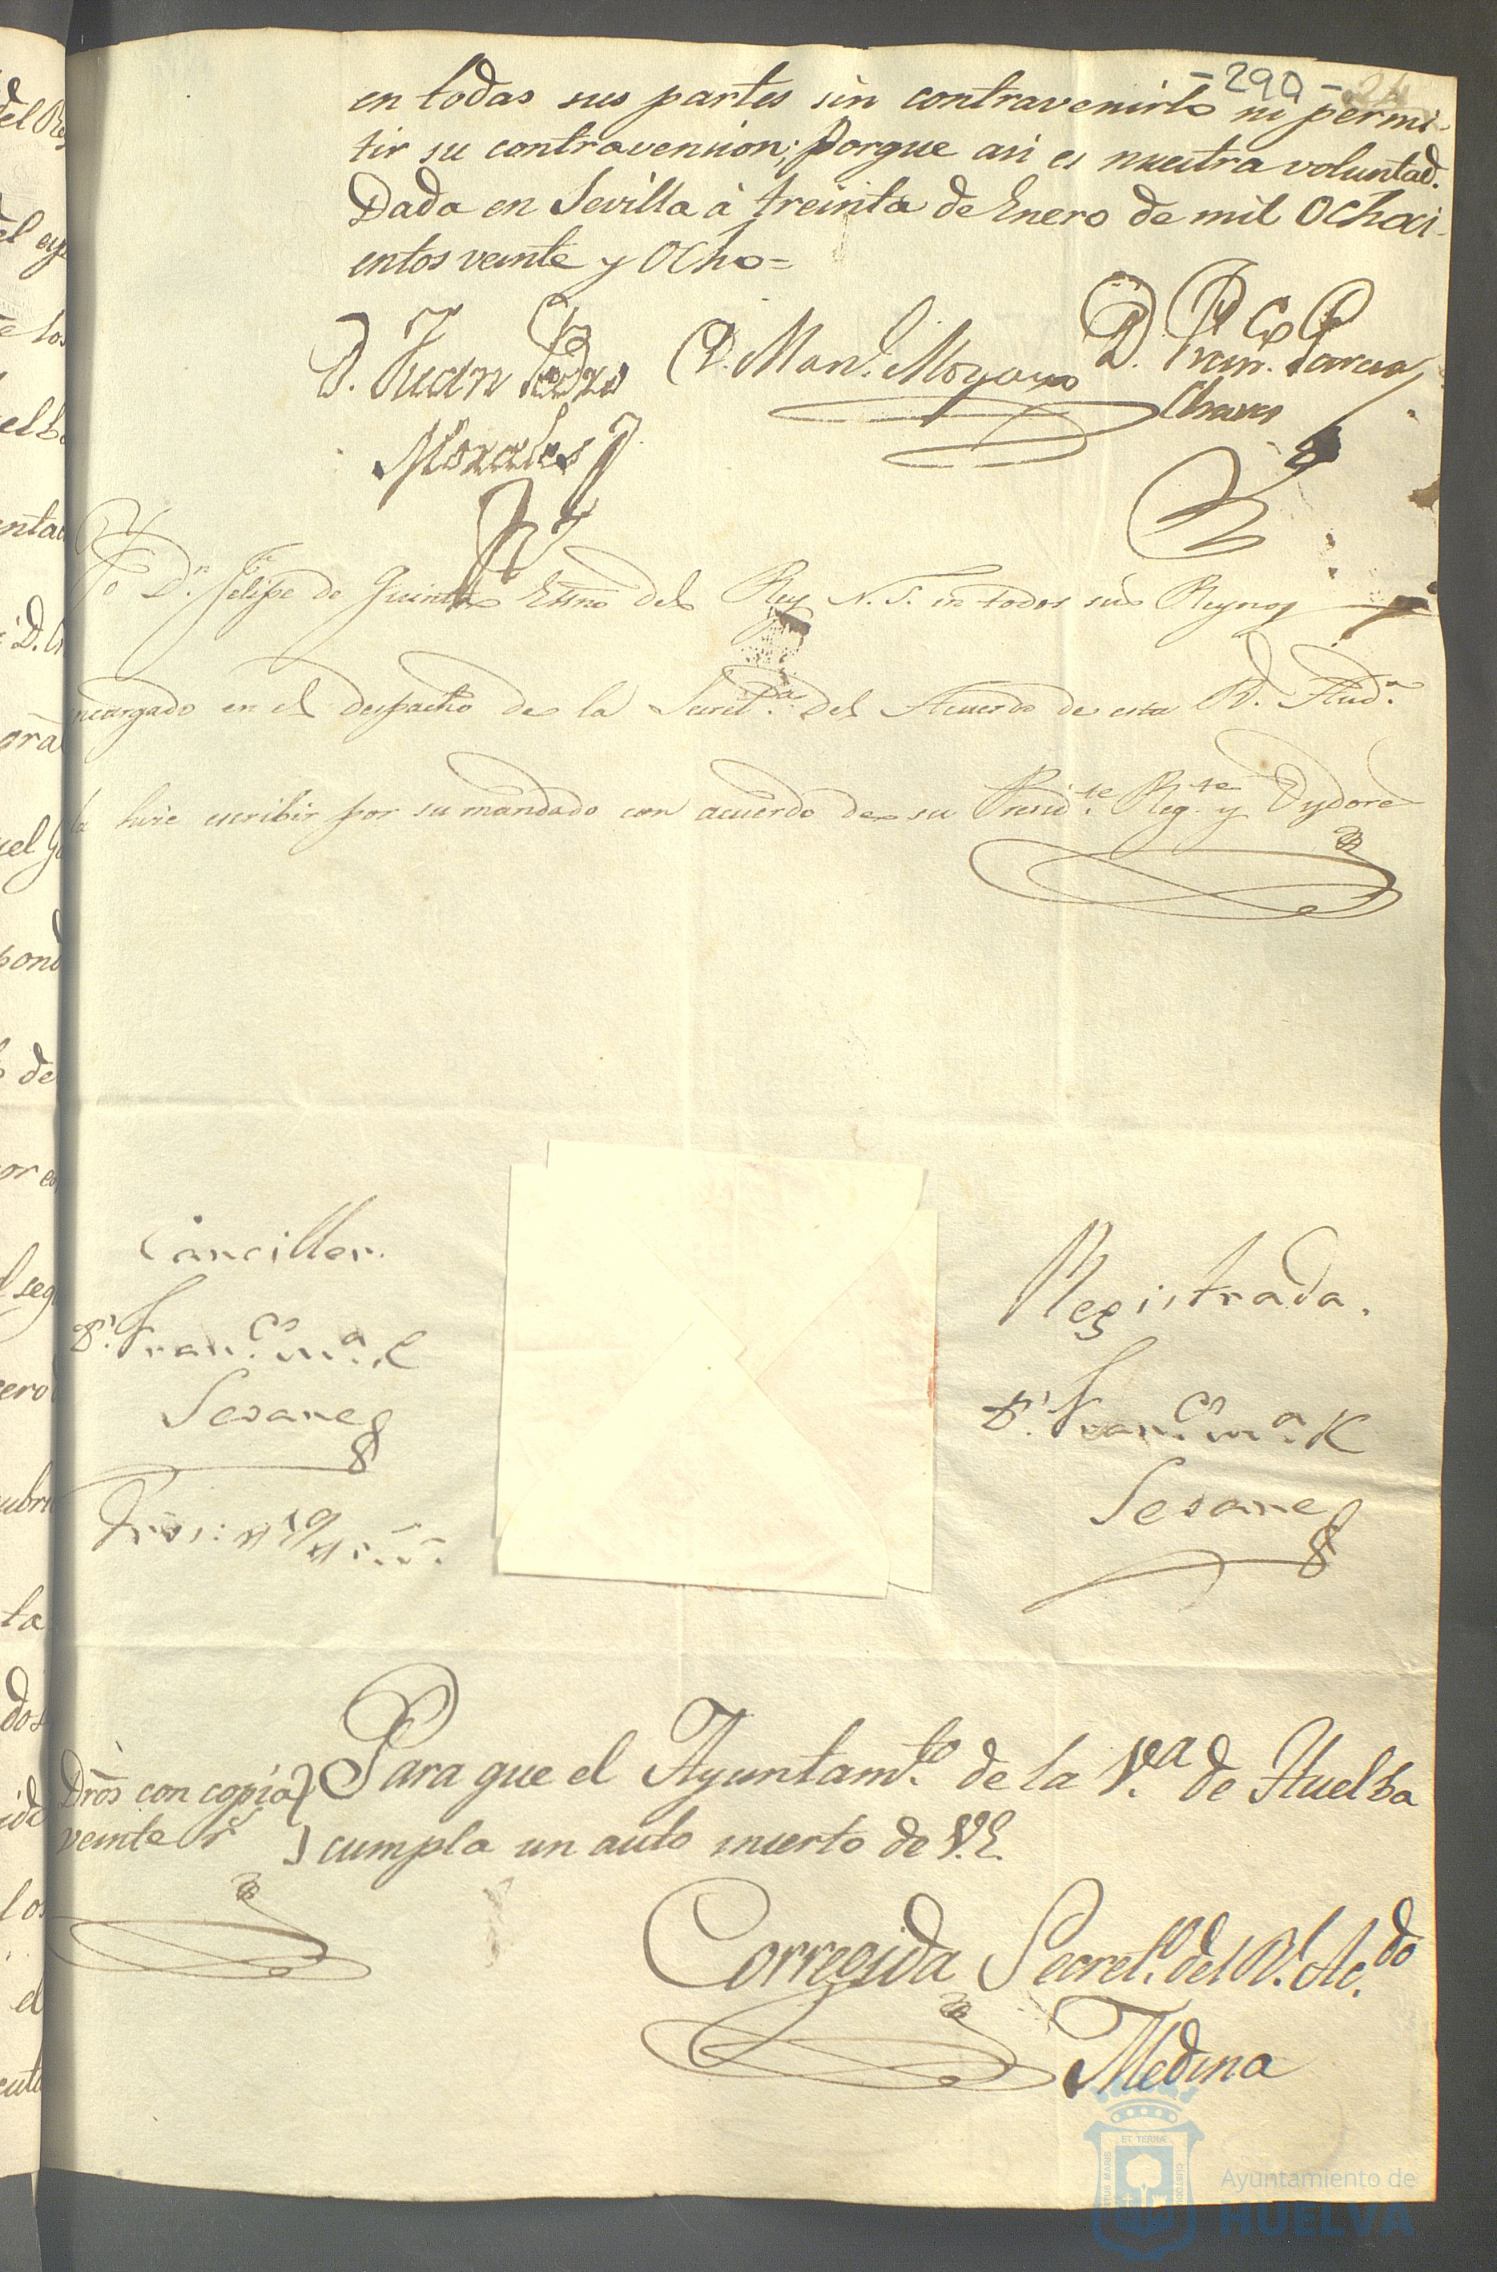 - 290 - 24
en todas sus partes sin contravenirlo ni permi-
tir su contravension; porque asi es nuestra voluntad.
Dada en Sevilla à treinta de Enero de mil ochoci-
entos veinte y ocho=
D. Juan Pedro
Morales
D. Man.l Moyano
D. Fran.co Garcia
Chaves
Yo D.n Felipe de Quinta Essno del Rey N. S. en todos sus Reynos
encargado en el despacho de la Secret.a del Acuerdo de esta R.l Aud.a
la hize escribir por su mandado con acuerdo de su Presid.te Reg.te y Oydores
Canciller.
D.n Fran.co M.a R
Seoane
Registrada.
D.n Fran.co M.a R
Seoane
Dros con copia
veinte r.s
Para que el Ayuntam.to de la V.a de Huelba
cumpla un auto inserto de V.E.
Corregida
Secret.o del R.l Ac.do
Medina
ET TERRÆ
PORTUS MARIS
CUSTODIA
Ayuntamiento de
HUELVA